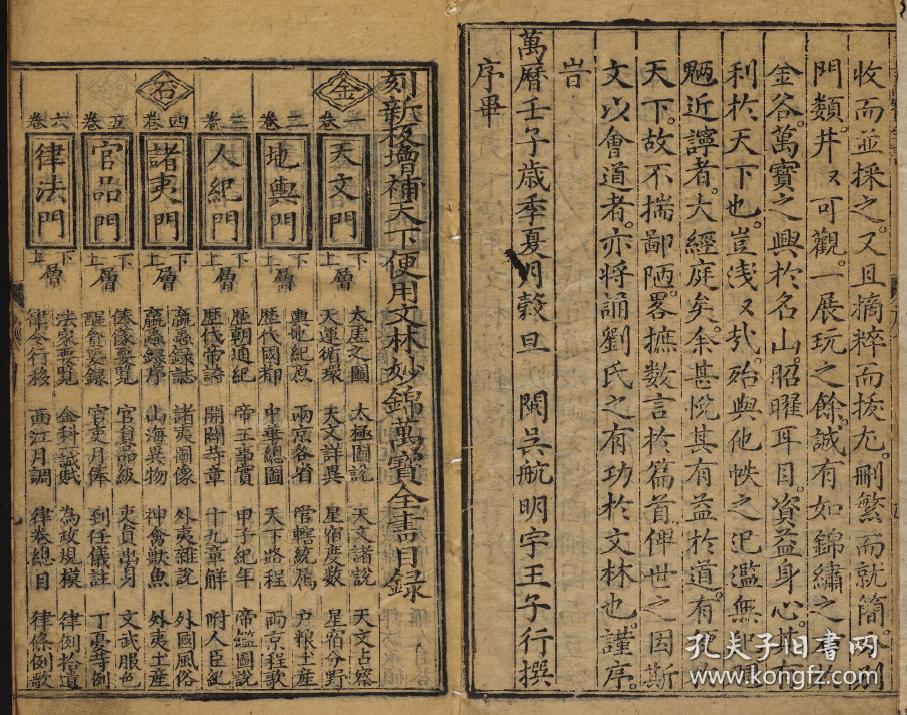 收而並採之又且摘粹而拔尤刪繁而就簡分別
門類井〻可觀一展玩之餘誠有如錦繡之
金谷萬寶之興於名山昭曜耳目資益身心其有
利於天下也豈浅〻哉殆與他帙之氾濫無
陋近謬者大經庭矣余甚悅其有益於道有
天下故不揣鄙陋畧摭数言於篇首俾世之因斯
文以會道者亦将誦劉氏之有功於文林也謹序
旹
萬曆壬子歲季夏月穀旦 閩吳航明宇王子行撰
序畢
刻新板增補天下便用文林妙錦萬寶全書目録
金
一卷 天文門 上下層 太虛之圖 太極圖說 天文諸說 天文占察
天運循環 天文詳異 星宿度數 星宿分野
二卷 地輿門 上下層 輿地紀原 兩京各省 管轄統属 户粮土産
歷代國都 中華總圖 天下路程 兩京程歌
三卷 人紀門 上下層 歷朝通紀 帝王事實 甲子紀年 帝鑑圖說
歷代帝誇 開闢等章 十九章解 附人臣紀
石
四卷 諸夷門 上下層 蠃蟲録誌 諸夷圖像 外夷雜說 外國風俗
蠃蟲録序 山海異物 神禽獸魚 外夷土産
五卷 官品門 上下層 要覽 官員品級 吏員出身 文武服色
要録 官吏月俸 到任儀註 丁憂等例
六卷 律法門 上下層 法家要覽 金科誠賦 為政規模 律例拾遺
律令行移 西江月調 律卷總目 律條例歌
孔夫子旧書网
www.kongfz.com